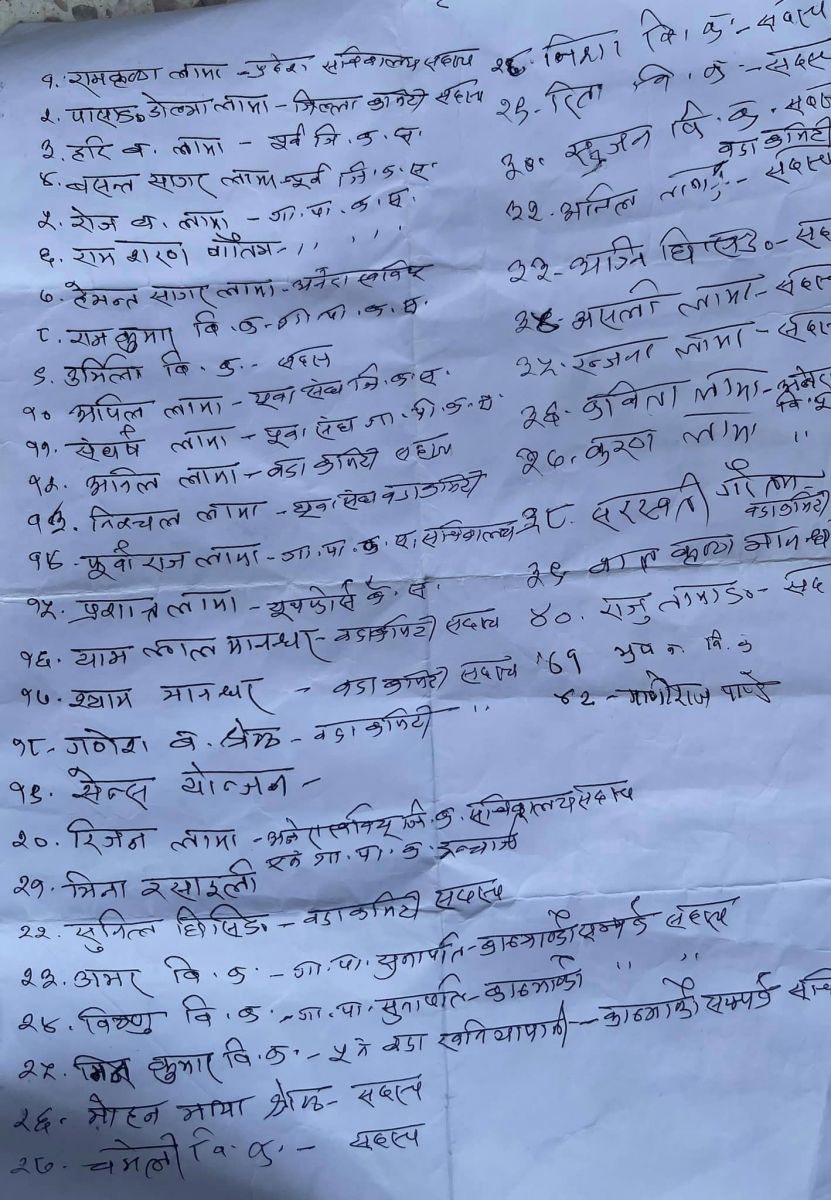 १. रामकृष्ण लामा - प्रदेश सचिवालय सदस्य
२. पासाङ डोल्मा लामा - जिल्ला कमिटी सदस्य
३. हरि ब. लामा - पूर्व जि. क. स.
४. बसन्त सागर लामा - पूर्व जि. क. स.
५. रोज ब. लामा - गा. पा. क. स.
६. राम शरण गौतम - ,, ,, ,,
७. हेमन्त सागर लामा -
८. राम कुमार वि. क. - गा. पा. क. स.
९. उर्मिला वि. क. - सदस्य
१० अपिल लामा - युवा संघ जि. क. स.
११. संघर्ष लामा - युवा संघ गा. पा. क. स.
१२. अनिल लामा - वडा कमिटी सदस्य
१३. निश्चल लामा - युवा संघ वडा कमिटी
१४. पूर्वा राज लामा - गा. पा. क. स. सचिवालय
१५. प्रशान्त लामा - यूथफोर्स के. स.
१६. याम लाल मानन्धर - वडा कमिटी सदस्य
१७. श्याम मानन्धर - वडा कमिटी सदस्य
१८. गणेश ब. श्रेष्ठ - वडा कमिटी ,,
१९. सेन्स योन्जन -
२०. रिजन लामा - अनेरास्ववियू जि. क. सचिवालय सदस्य
एवं गा. पा. क. इन्चार्ज
२१. मिना रसाइली
२२. सुनिल घिसिङ - वडा कमिटी सदस्य
२३. अमर वि. क. - गा. पा. - काठमाण्डौ सम्पर्क सदस्य
२४. विष्णु वि. क. - गा. पा. - काठमाडौं ,, ,,
२५. कुमार वि. क. - वडा - काठमाडौं सम्पर्क
२६. मोहन माया श्रेष्ठ - सदस्य
२७. चमेली वि. क. - सदस्य
२८. निशा वि. क. - सदस्य
२९. रिता वि. क. - सदस्य
३०. वि. क. सदस्य
वडा कमिटी
३२. अनिल लामा - सदस्य
३३ - अग्नि घिसिङ - सद
३४ - असली लामा - सदस्य
३५. रन्जना लामा - सदस्य
३६. कविता लामा -
३७. करुण लामा ,,
३८. सरस्वती गौतम -
वडा कमिटी
३९ बाल कृष्ण मानन्ध
४०. राजु तामाङ - सद
४१ वि. क
४२ - मणीराज पाण्डे